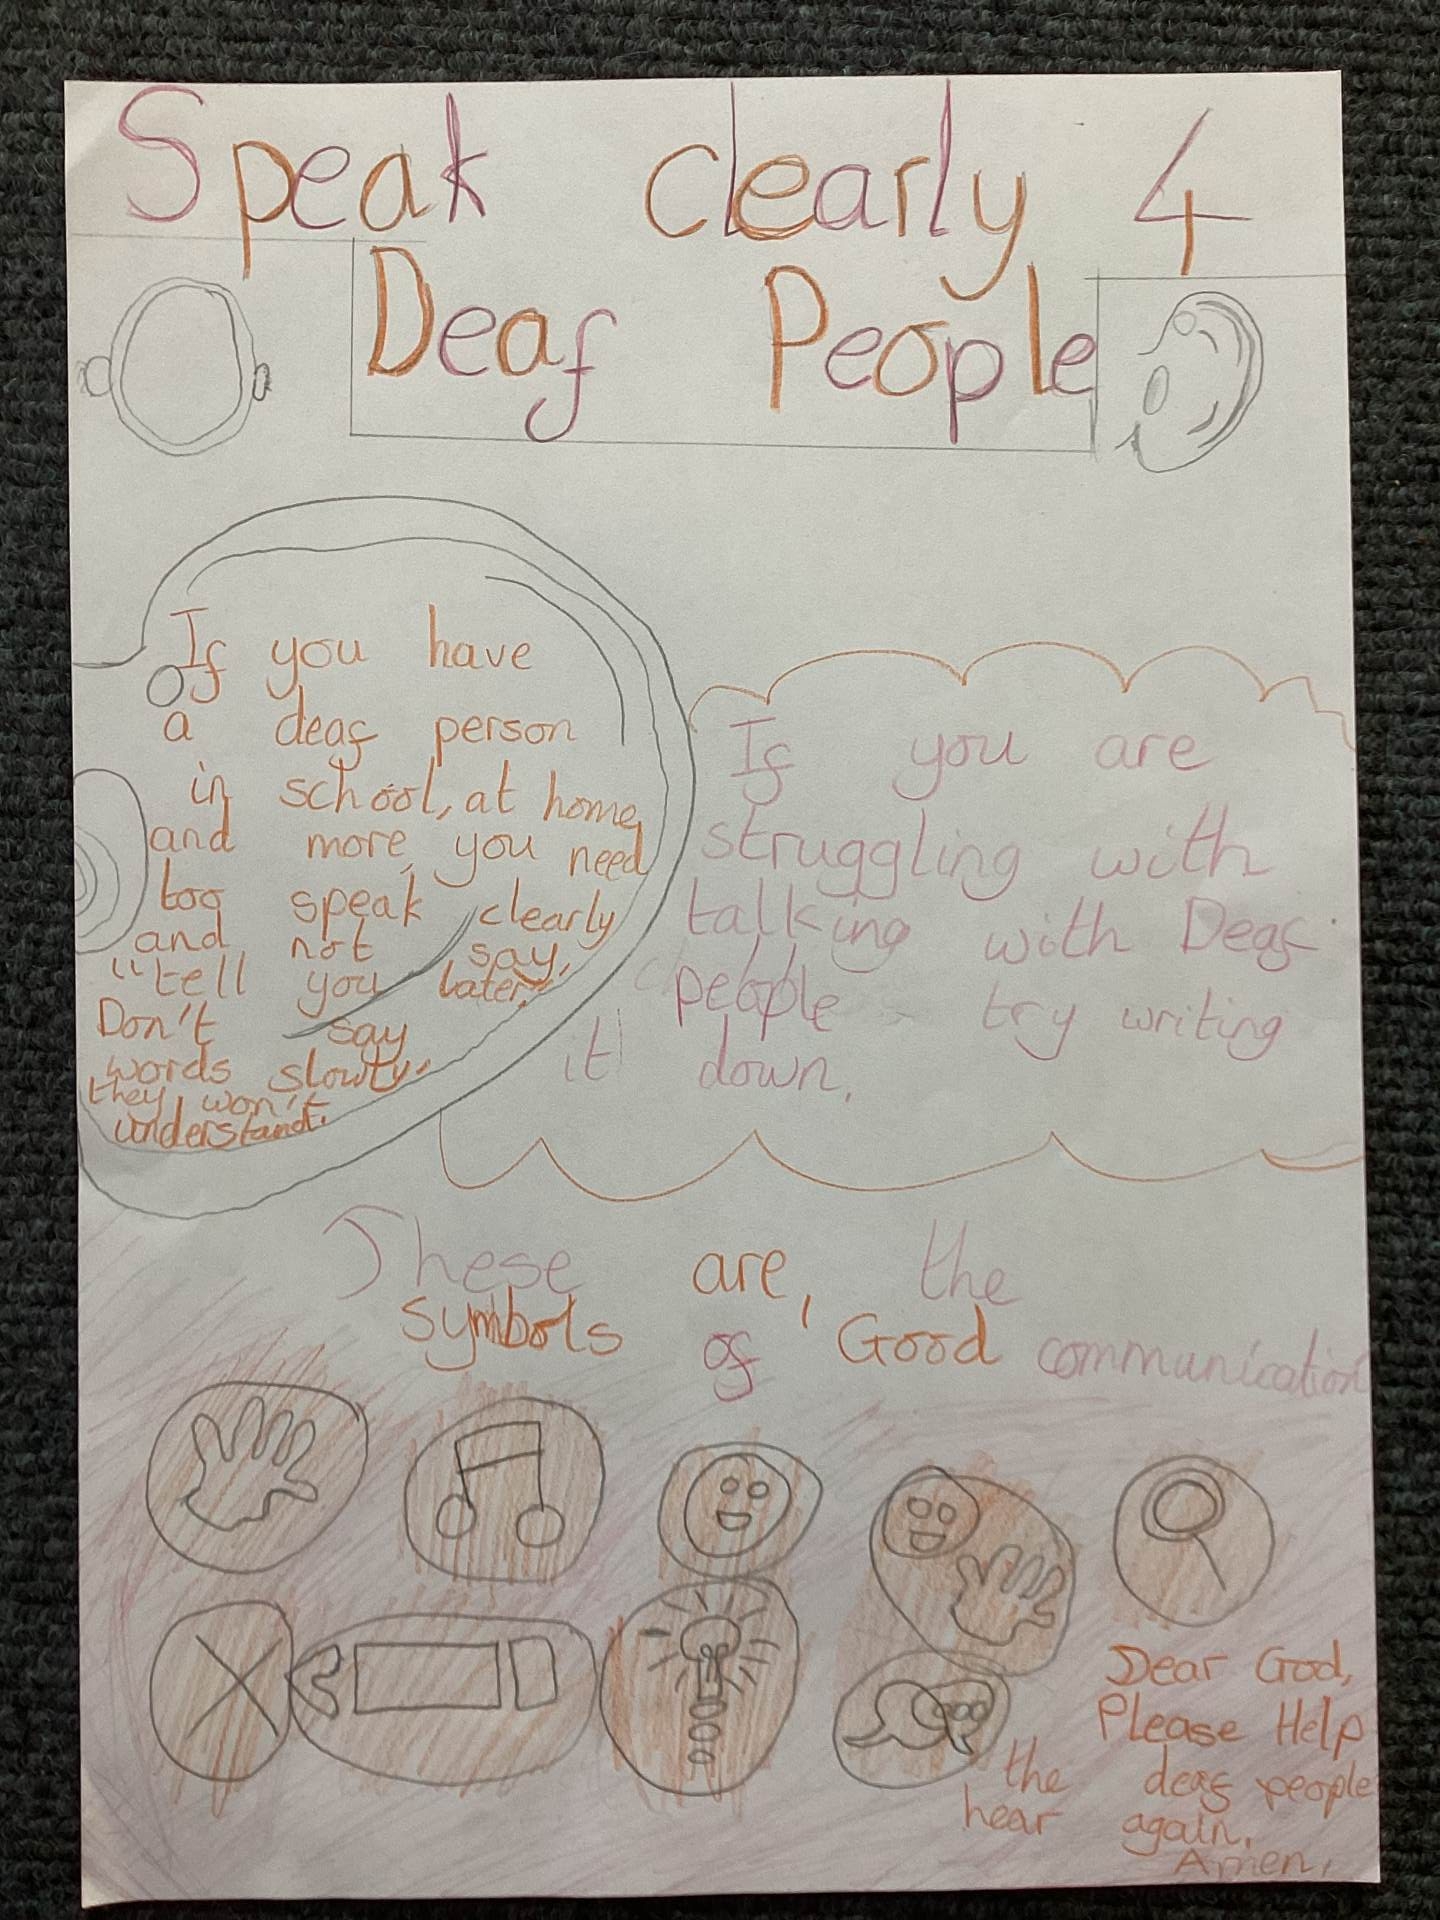 Speak clearly 4
Deaf People
If you have
a deaf person
in school, at home
and more, you need
too speak clearly
and not say,
"tell you later."
Don't say
words slowly,
they won't
understand.
If you are
struggling with
talking with Deaf
people try writing
it down.
These are, the
symbols of Good communication
Dear God,
Please Help
the deaf people
hear again.
Amen.